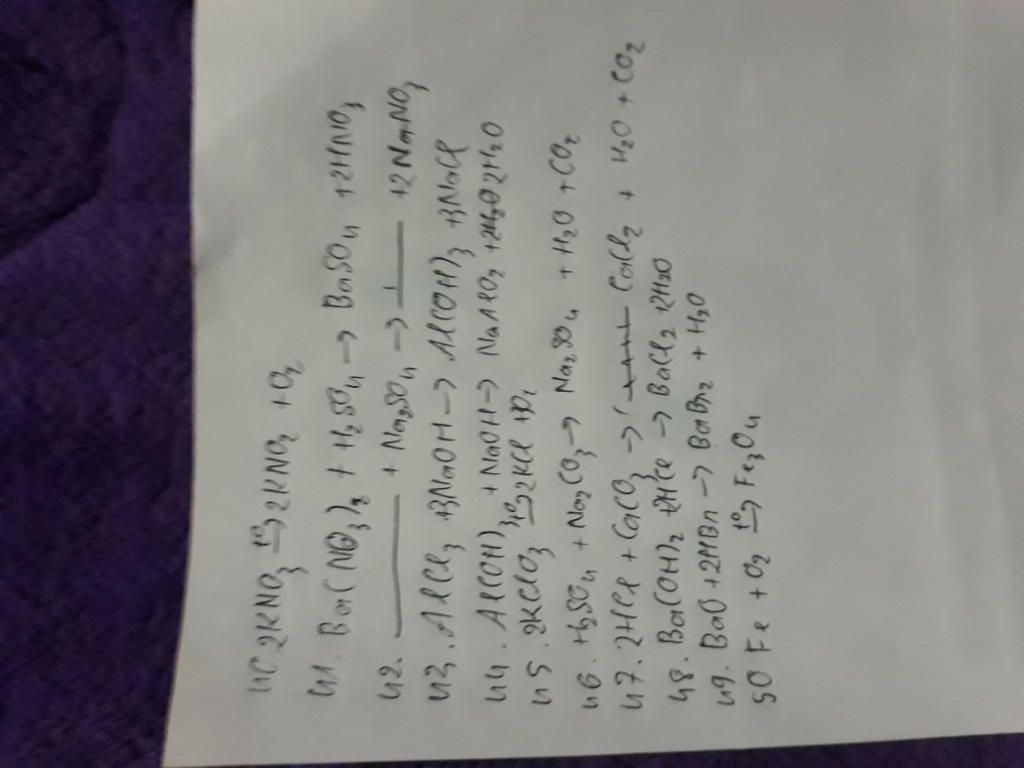 40. 2KNO3 t°→ 2KNO2 + O2
41. Ba(NO3)2 + H2SO4 → BaSO4 + 2HNO3
42. ——— + Na2SO4 → —1— + 2NaNO3
43. AlCl3 + 3NaOH → Al(OH)3 + 3NaCl
44. Al(OH)3 + NaOH → NaAlO2 + 2H2O
45. 2KClO3 t°→ 2KCl + O2
46. H2SO4 + Na2CO3 → Na2SO4 + H2O + CO2
47. 2HCl + CaCO3 → CaCl2 + H2O + CO2
48. Ba(OH)2 + 2HCl → BaCl2 + 2H2O
49. BaO + 2HBr → BaBr2 + H2O
50 Fe + O2 t°→ Fe3O4